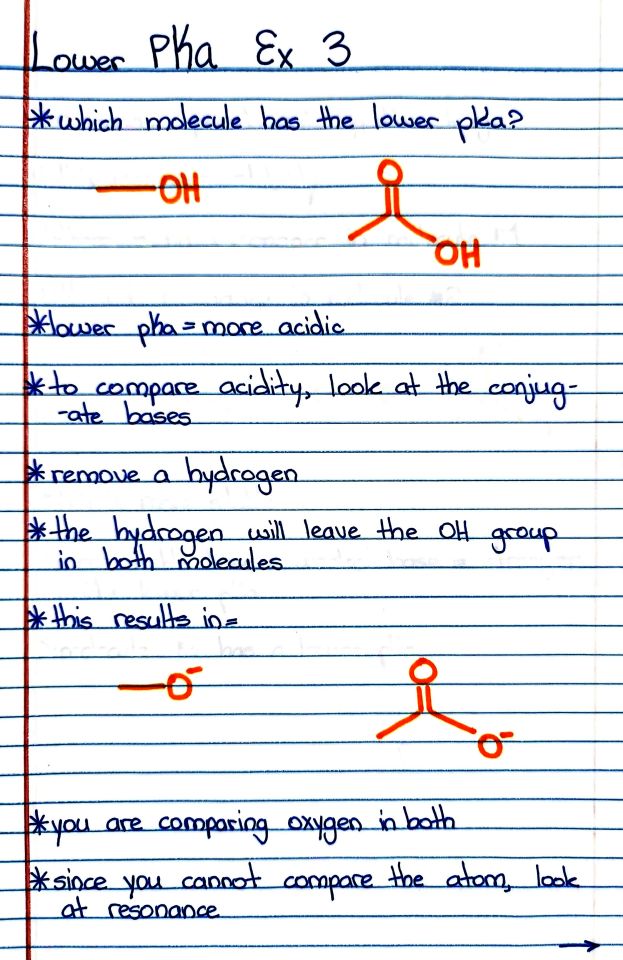 Lower Pka Ex 3
* which molecule has the lower pka?
OH
O
OH
* lower pka = more acidic
* to compare acidity, look at the conjug-
-ate bases
* remove a hydrogen
* the hydrogen will leave the OH group
in both molecules
* this results in =
O⁻
O
O⁻
* you are comparing oxygen in both
* since you cannot compare the atom, look
at resonance
→